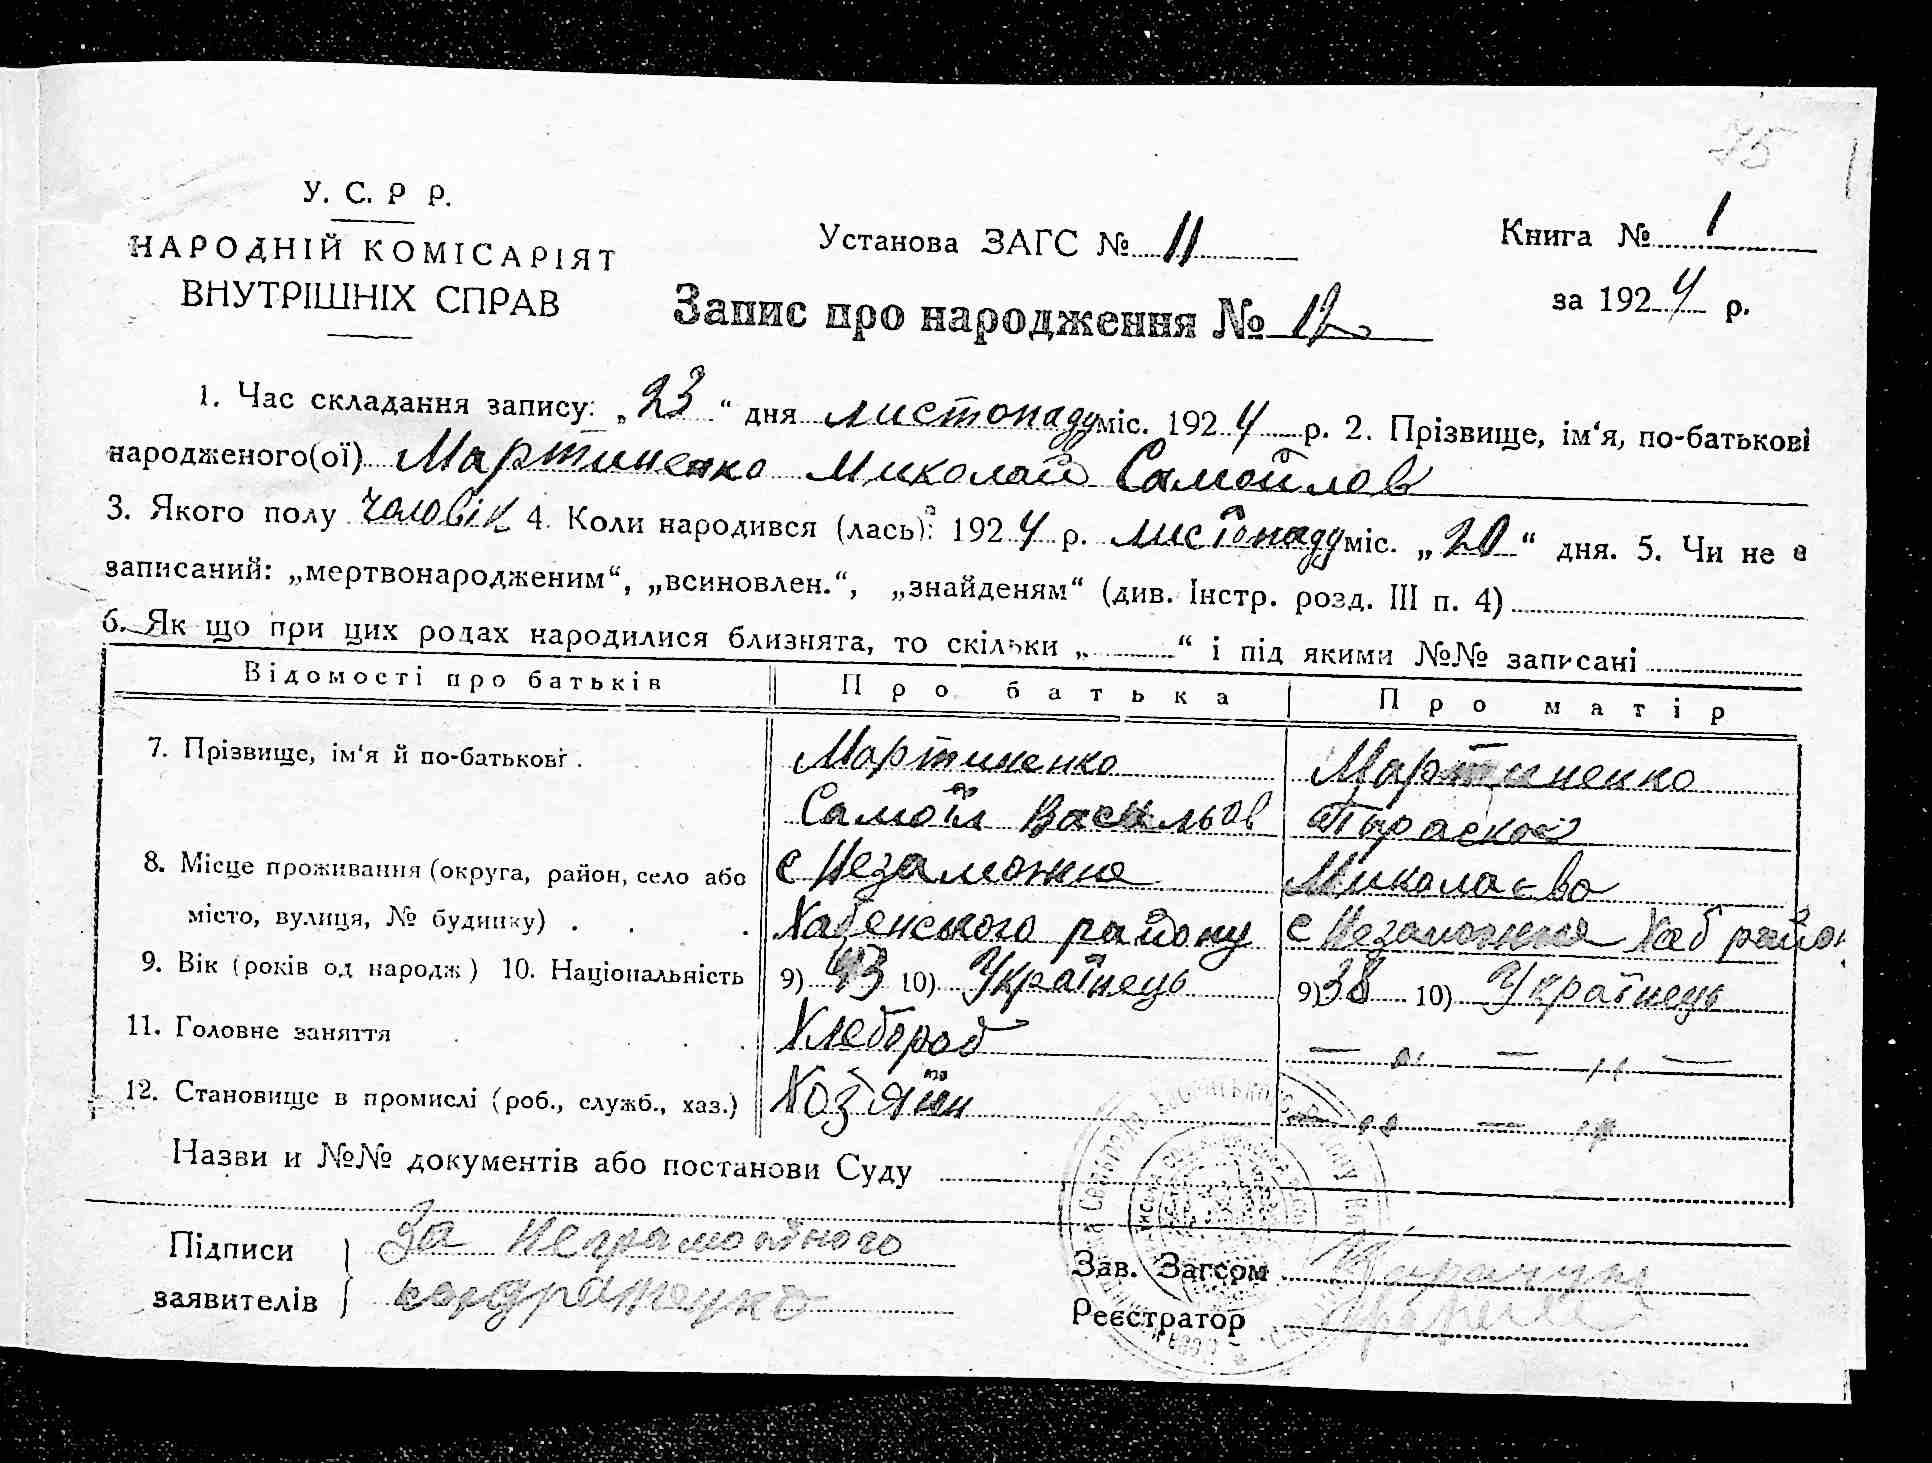 75
У. С. Р Р.
НАРОДНІЙ КОМІСАРІЯТ
ВНУТРІШНІХ СПРАВ
Установа ЗАГС № 11
Книга № 1
за 1924 р.
Запис про народження № 12
1. Час складання запису: „23“ дня листопаду міс. 1924 р. 2. Прізвище, ім‘я, по-батькові
народженого(ої) Мартиненко Миколай Самойлов
3. Якого полу чоловік 4. Коли народився (лась): 1924 р. листопаду міс. „20“ дня. 5. Чи не є
записаний: „мертвонародженим“, „всиновлен.“, „знайденям“ (див. Інстр. розд. III п. 4)
6. Як що при цих родах народилися близнята, то скільки „ “ і під якими №№ записані
Відомості про батьків Про батька Про матір
7. Прізвище, ім‘я й по-батькові . Мартиненко Мартиненко
Самоїл Васильов
8. Місце проживання (округа, район, село або с Незаможня Миколаєва
місто, вулиця, № будинку) . . . Хабенського району с Незаможня Хаб район
9. Вік (років од народж) 10. Національність 9) 43 10) Українець 9) 38 10) Українець
11. Головне заняття . . . Хлебороб — „ — „ —
12. Становище в промислі (роб., служб., хаз.) Хозяїн — „ — „
Назви и №№ документів або постанови Суду
Підписи За неграмотного
заявителів
Зав. Загсом
Реєстратор